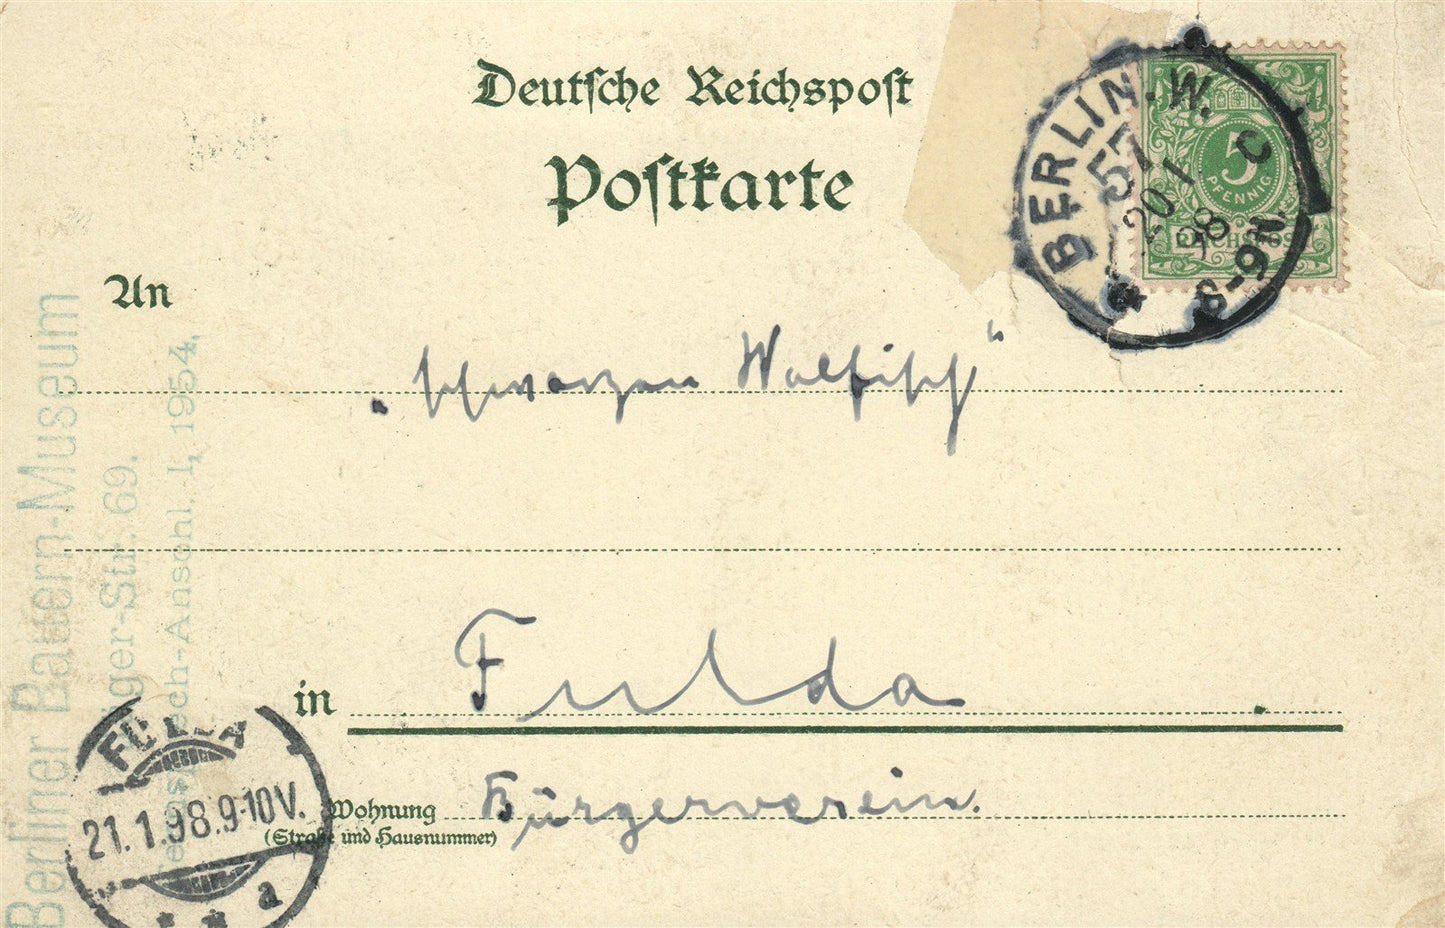 Deutsche Reichspost
Postkarte
BERLIN.W. C
57
20 1
98
6-9N.
5
PFENNIG
REICHSPOST
An
„schwarzen Walfisch“
in Fulda
Wohnung Bürgerverein.
(Straße und Hausnummer)
Berliner Bauern-Museum
Jäger-Str. 69.
Fernsprech-Anschl. I, 1954.
FULDA
21.1.98.9-10V.
* * a